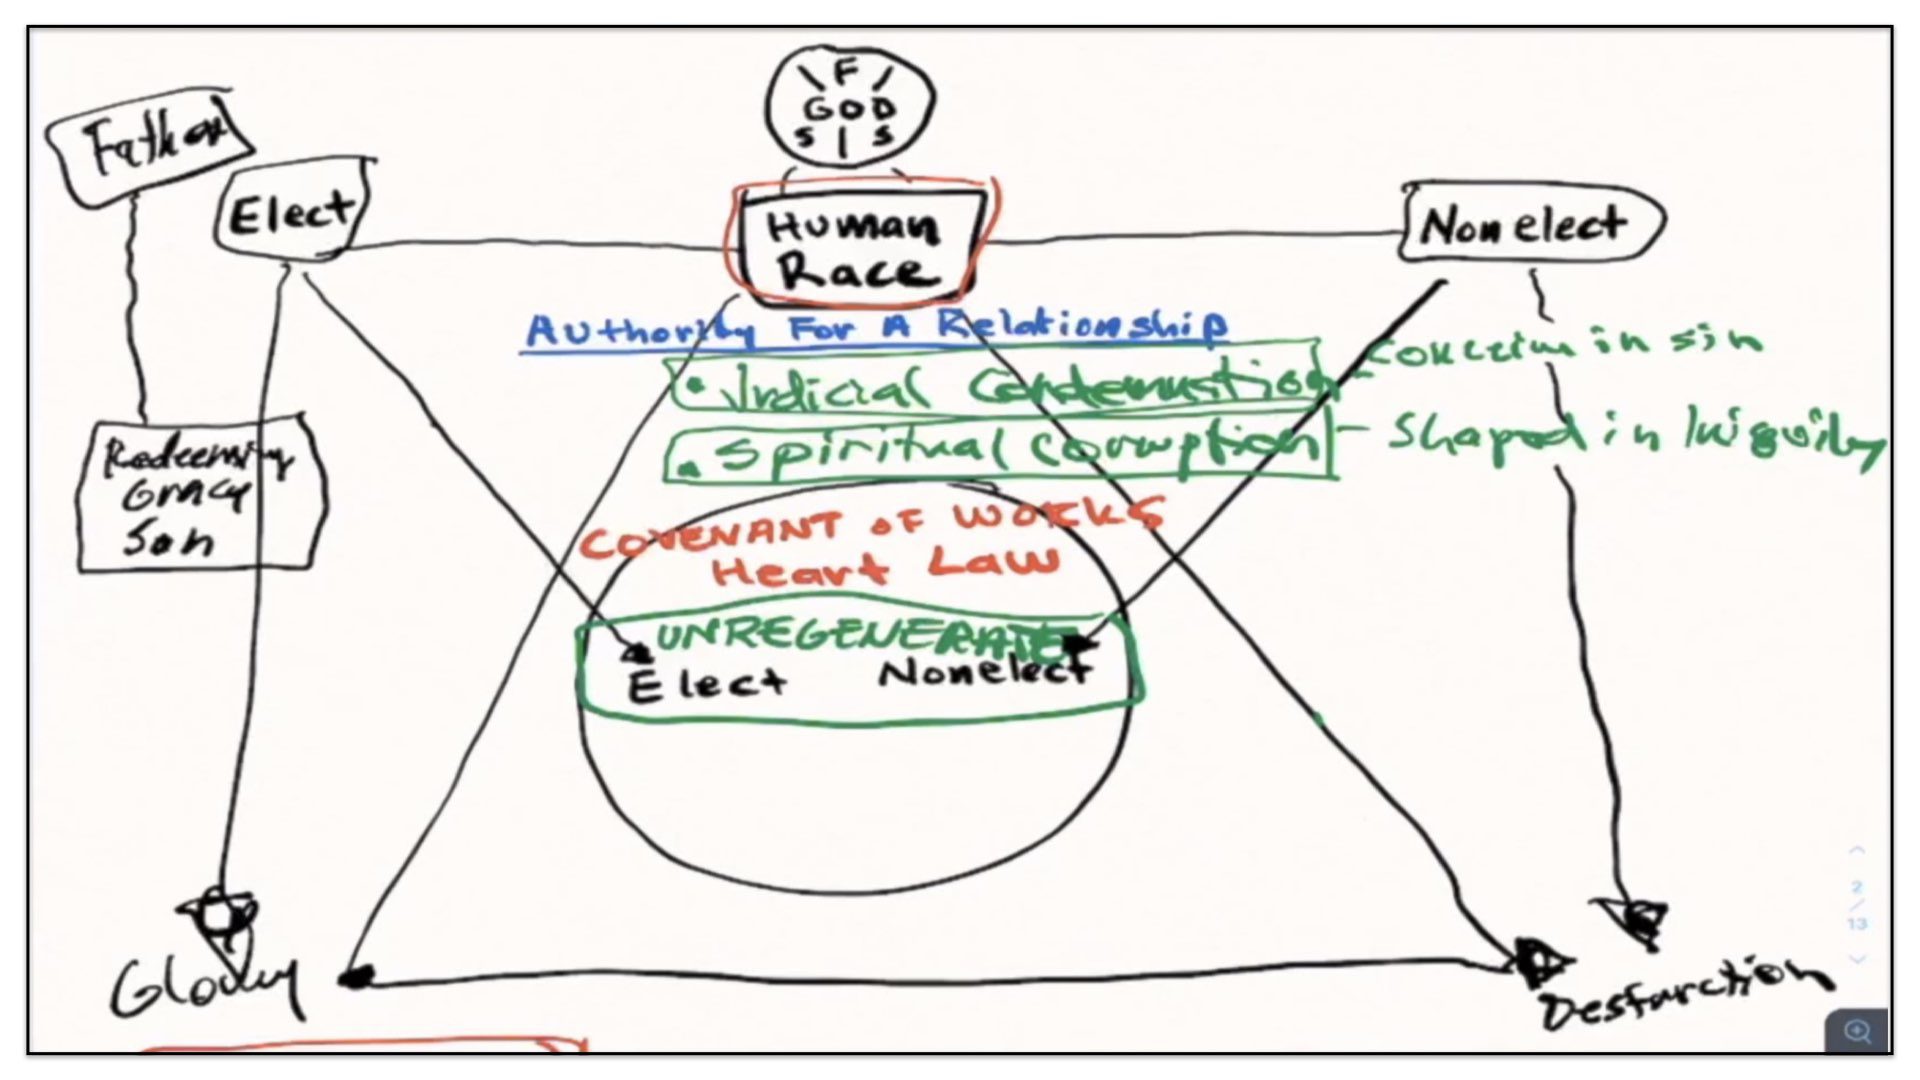 \ F /
GOD
S | S
Father
Elect
Human
Race
Nonelect
Authority For A Relationship
• Judicial Condemnation - conceiv in sin
• Spiritual Corruption - Shaped in Iniquity
Redeeming
Gracy
Son
COVENANT OF WORKS
Heart Law
UNREGENERATE
Elect Nonelect
Glory
Desturction
2
/
13